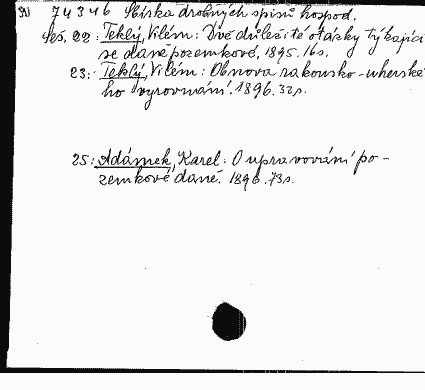 74346 Sbírka drobných spisů hospod.
seš. 22: Teklý, Vilém: Dvě důležité otázky týkající
se daně pozemkové. 1895. 16s.
23: Teklý, Vilém: Obnova rakousko-uherské-
ho vyrovnání. 1896. 32s.
25: Adámek, Karel: O upravování po-
zemkové daně. 1896. 73s.